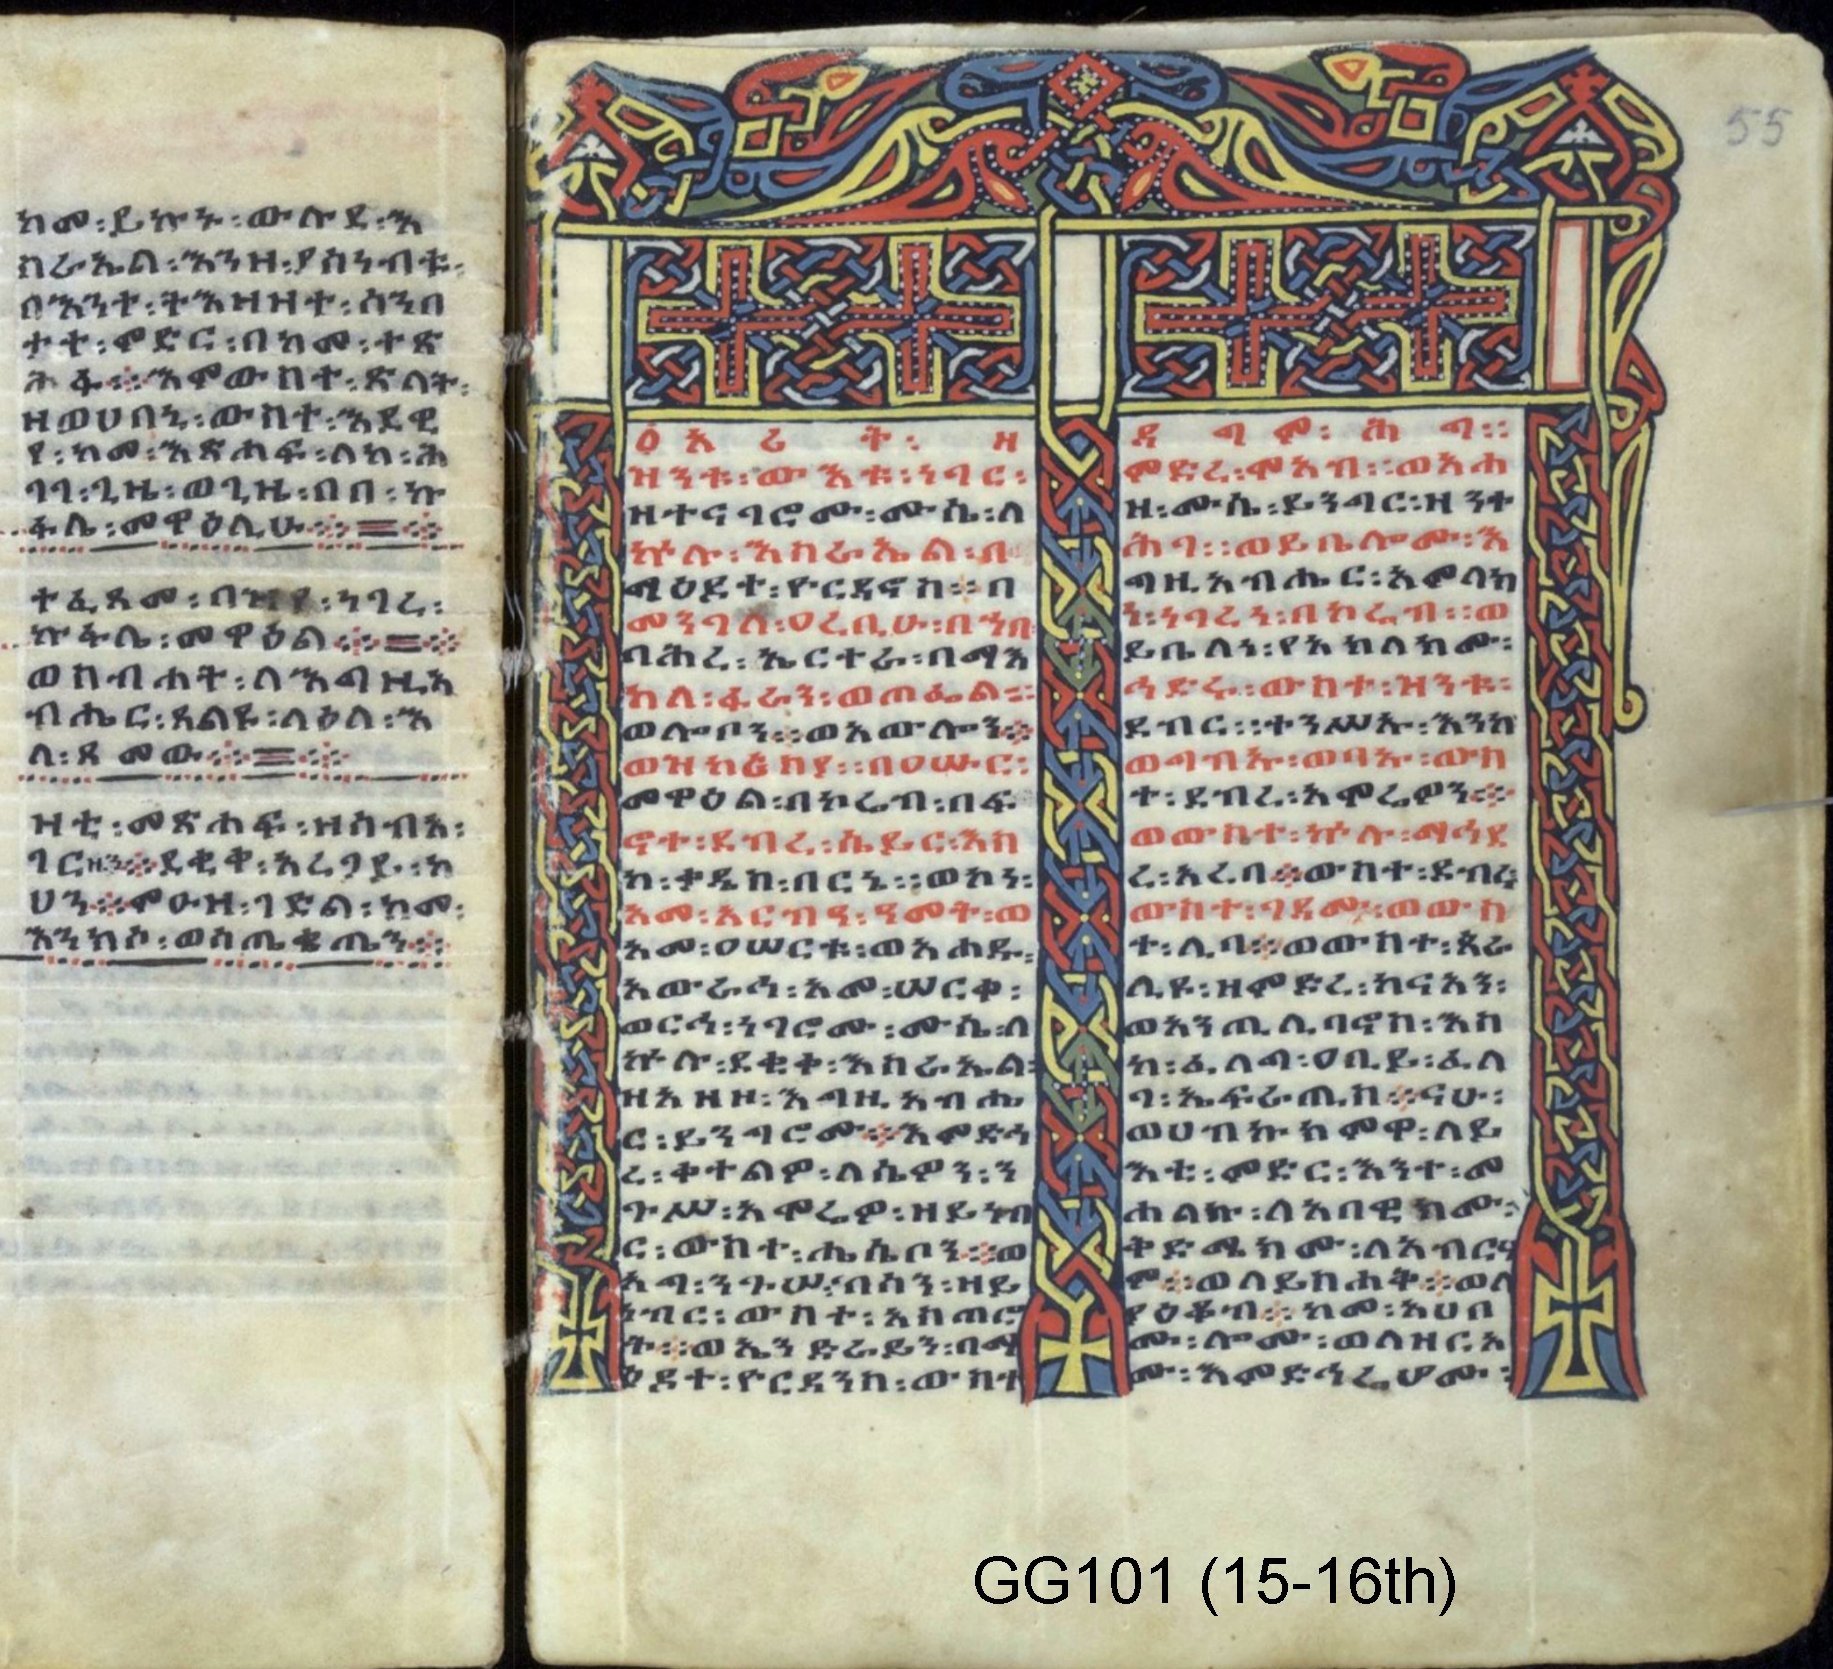 ከመ፡ይኩኑ፡ውሉደ፡እ
ስራኤል፡እንዘ፡ያሰነብቱ፡
በእንተ፡ትእዛዛተ፡ሰንበ
ታተ፡ምድር፡በከመ፡ተጽ
ሕፋ።እምውስተ፡ጽላት፡
ዘወሀበኒ፡ውስተ፡እደዊ
የ፡ከመ፡እጽሐፍ፡ለከ፡ሕ
ገገ፡ጊዜ፡ወጊዜ፡በበ፡ኩ
ፋሌ፡መዋዕሊሁ።=።
ተፈጸመ፡በዝየ፡ነገረ፡
ኩፋሌ፡መዋዕል።=።
ወስብሐት፡ለእግዚአ
ብሔር፡ጸልዩ፡ላዕለ፡እ
ለ፡ጸመው።=።
ዝቲ፡መጽሐፍ፡ዘሰብአ፡
ገርዘን።ደቂቀ፡አረጋይ፡ካ
ህን።ምዑዝ፡ገድል፡ከመ፡
እንከኦ፡ወሰጤቄጤን።
55
ዕአሪት፡ዘ
ዝንቱ፡ውእቱ፡ነገር፡
ዘተናገሮሙ፡ሙሴ፡ለ
ኵሉ፡እስራኤል፡በ
ማዕደተ፡ዮርዳኖስ።በ
መንገለ፡ዐረቢሁ፡በኀበ
ባሕረ፡ኤርተራ፡በማእ
ከለ፡ፋራን፡ወጦፌል።
ወሎቦን።ወአውሎን።
ወዝክሩስያ።በዐሡር፡
መዋዕል፡በኮሬብ፡በፍ
ኖተ፡ደብረ፡ሴይር፡እስ
ከ፡ቀዴስ፡በርኔ።ወኮነ፡
አመ፡አርብዓ፡ዓመት፡ወ
አመ፡ዐሠርቱ፡ወአሐዱ፡
አውራኅ፡አመ፡ሠርቀ፡
ወርኅ፡ነገሮሙ፡ሙሴ፡ለ
ኵሉ፡ደቂቀ፡እስራኤል፡
ዘአዘዞ፡እግዚአብሔ
ር፡ይንግሮሙ።እምድኅ
ረ፡ቀተልዎ፡ለሴዎን፡ን
ጉሠ፡አሞሬዎ፡ዘይነብ
ር፡ውስተ፡ሔሴቦን።ወ
አግ፡ንጉሠ፡ባሳን፡ዘይ
ነብር፡ውስተ፡አስጠሮ
ት።ወኤንድራይን፡በማ
ዕዶተ፡ዮርዳንስ፡ውስተ
ዳግም፡ሕግ።
ምድረ፡ሞአብ።ወአሐ
ዘ፡ሙሴ፡ይንግር፡ዘንተ
ሕገ።ወይቤሎሙ፡እ
ግዚአብሔር፡አምላክ
ነ፡ነገረነ፡በኮሬብ።ወ
ይቤለነ፡የአክለክሙ፡
ኀድሩ፡ውስተ፡ዝንቱ፡
ደብር።ተንሥኡ፡እንከ
ወግብኡ፡ወባኡ፡ውስ
ተ፡ደብረ፡አሞሬዎን።
ወውስተ፡ኵሉ፡ማኅደ
ረ፡አረባ።ውስተ፡ደብሩ
ውስተ፡ገዳሙ፡ወውስ
ተ፡ሊባ።ወውስተ፡ጳራ
ሊዩ፡ዘምድረ፡ከናአን፡
ወአንጢሊባኖስ፡እስ
ከ፡ፈለግ፡ዐቢይ፡ፈለ
ገ፡ኤፍራጢስ።ናሁ፡
ወሀብኩክምዋ፡ለይ
እቲ፡መድር፡እንተ፡መ
ሐልኩ፡ለአበዊክሙ፡
ቅድሜክሙ፡ለአብርሃ
ም።ወለይስሐቅ።ወለ
የዕቆብ።ከመ፡አሀበ
ሙ፡ሎሙ፡ወለዘርአ
ሙ፡እምድኅሬሆሙ፡
GG101 (15-16th)